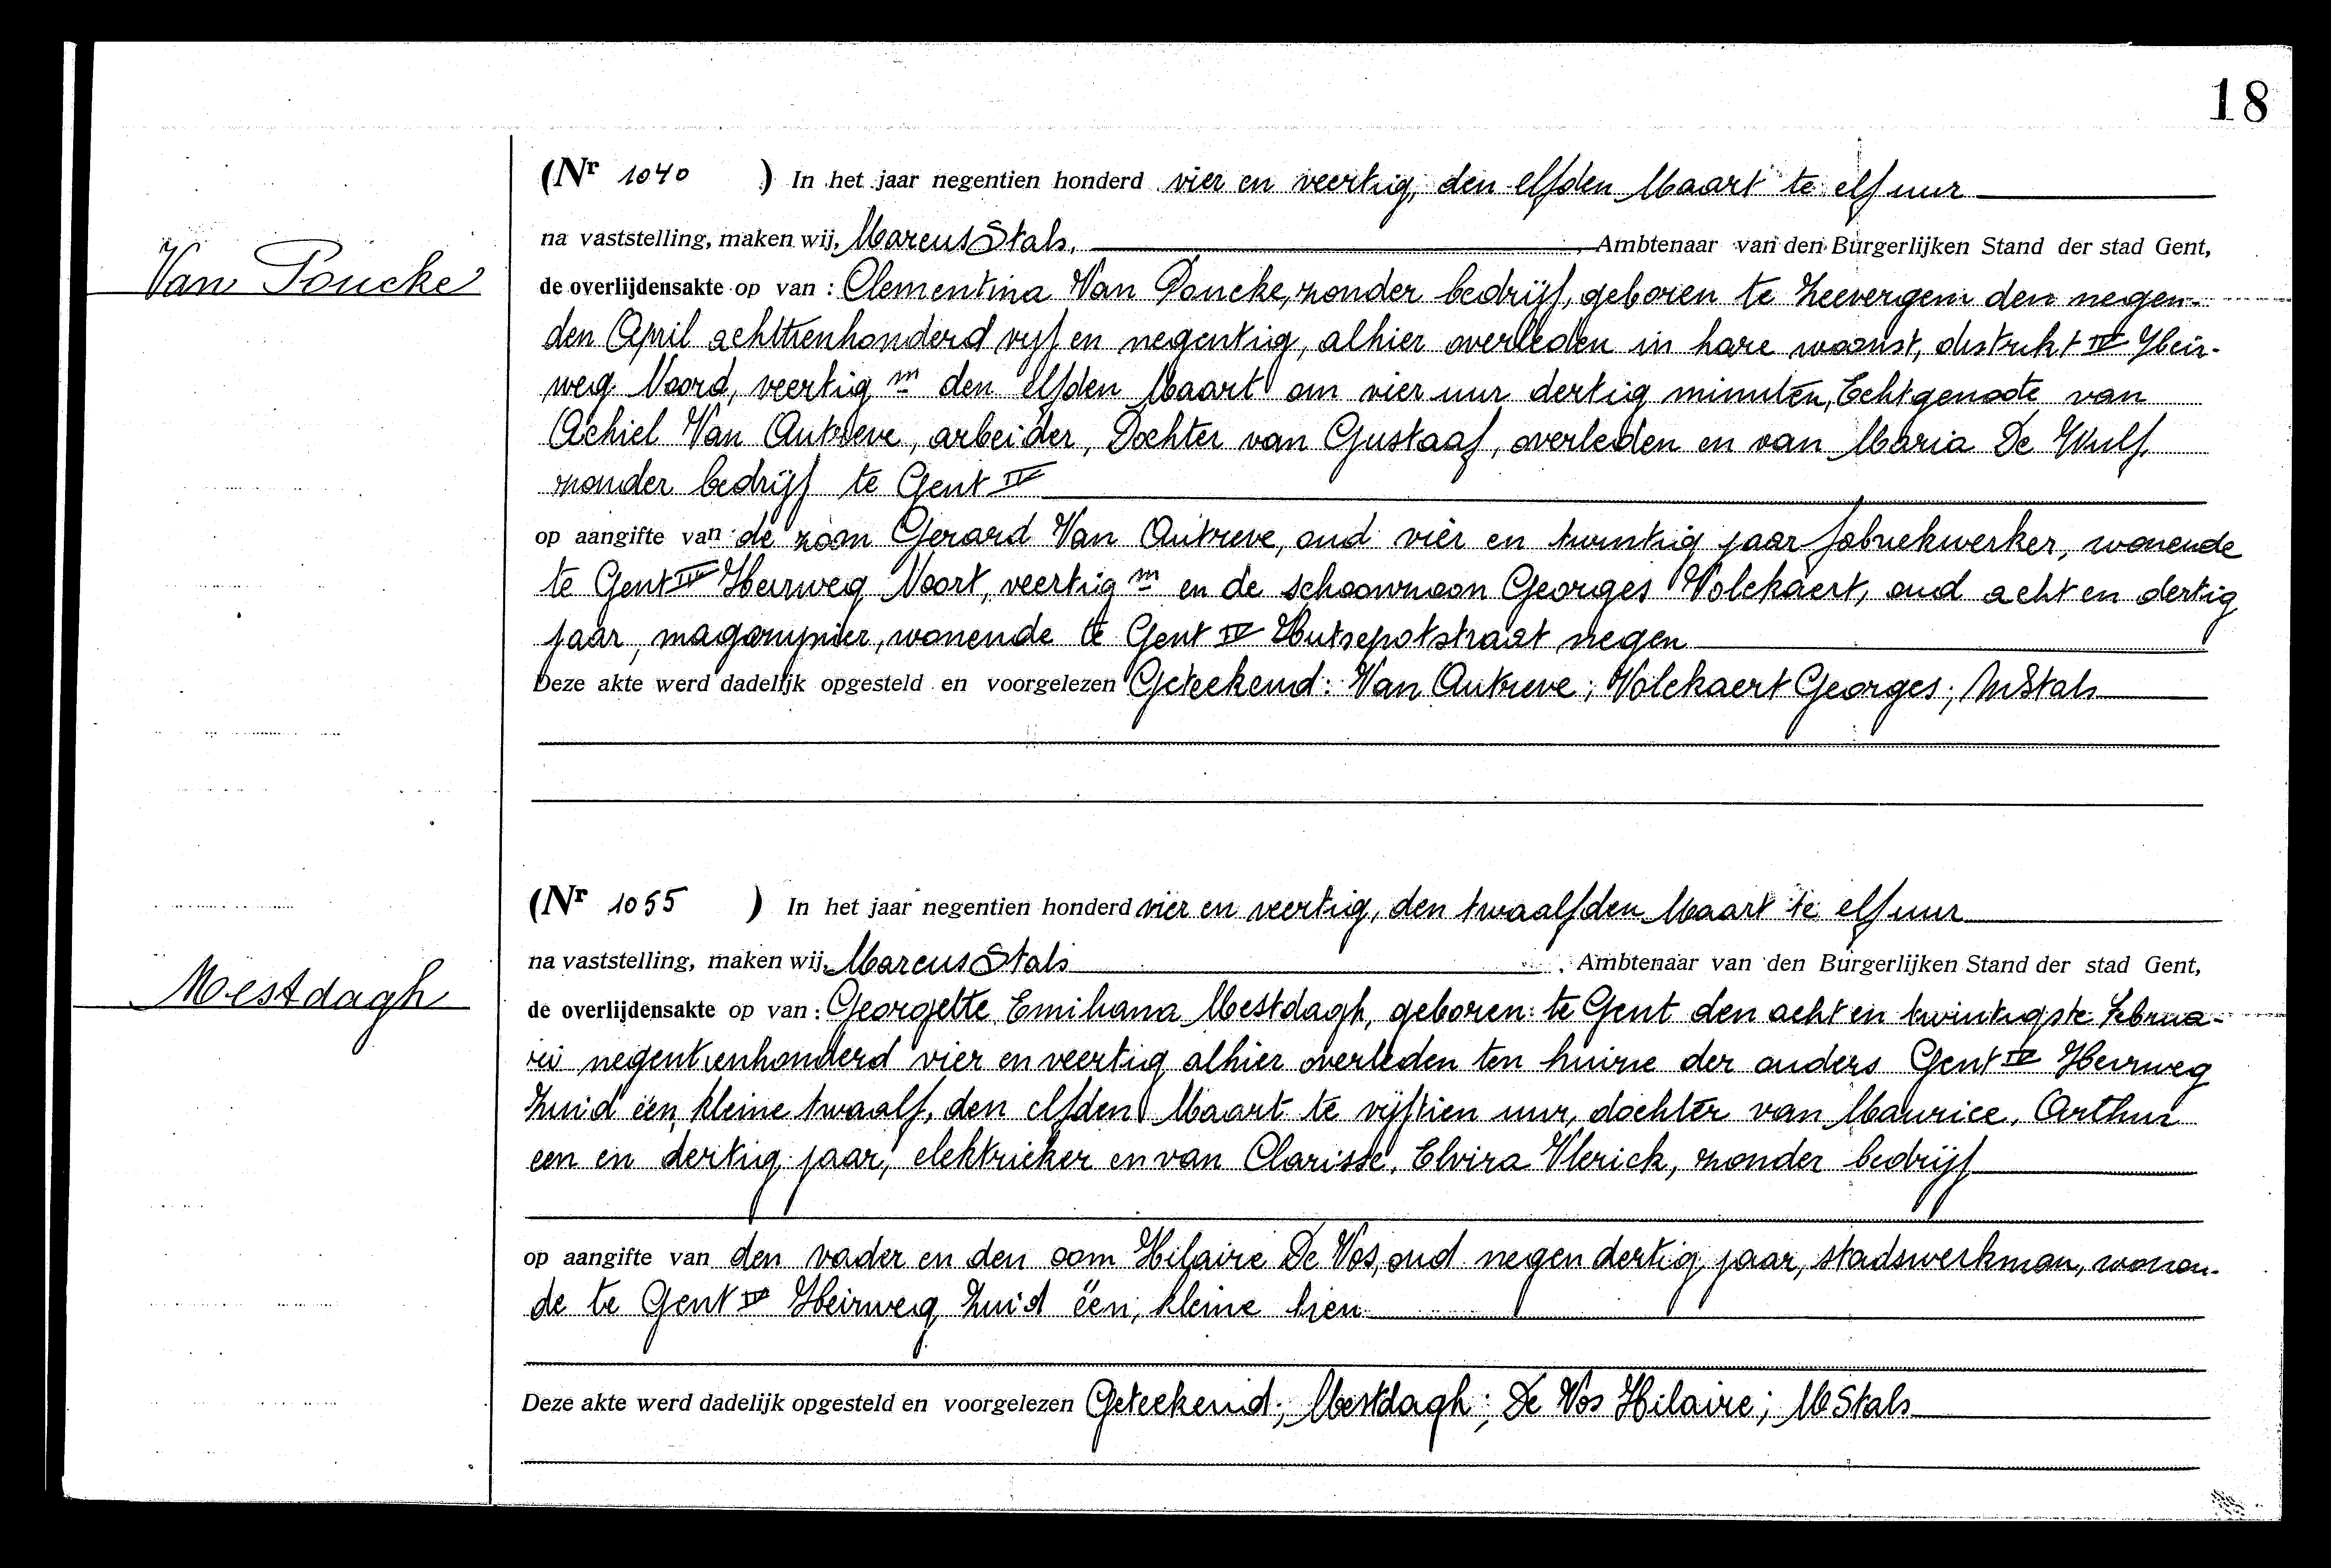 18
(Nr 1040 ) In het jaar negentien honderd vier en veertig, den elfden Maart te elf uur
na vaststelling, maken wij, Marcus Stals, , Ambtenaar van den Burgerlijken Stand der stad Gent,
Van Poucke
de overlijdensakte op van : Clementina Van Poucke, zonder bedrijf, geboren te Zeevergem den negen-
den April achttienhonderd vyf en negentig, alhier overleden in hare woonst, distrikt IV Heir-
weg Noord, veertig m den elfden Maart om vier uur dertig minuten, Echtgenoote van
Achiel Van Autreve, arbeider, Dochter van Gustaaf, overleden en van Maria De Wulf
zonder bedrijf te Gent IV
op aangifte van de zoon Gerard Van Autreve, oud vier en twintig jaar fabriekwerker, wonende
te Gent IV Heirweg Noort, veertig m en de schoonzoon Georges Volckaert, oud acht en dertig
jaar, magazynier, wonende te Gent IV Hutsepotstraat negen
Deze akte werd dadelijk opgesteld en voorgelezen Geteekend: Van Autreve; Volckaert Georges; M Stals
(Nr 1055 ) In het jaar negentien honderd vier en veertig, den twaalfden Maart te elf uur
na vaststelling, maken wij, Marcus Stals , Ambtenaar van den Burgerlijken Stand der stad Gent,
Mestdagh
de overlijdensakte op van : Georgette Emiliana Mestdagh, geboren te Gent den acht en twintigste Februa-
ri negentienhonderd vier en veertig alhier overleden ten huize der ouders Gent IV Heirweg
Zuid één, kleine twaalf, den elfden Maart te vijftien uur, dochter van Maurice, Arthur
een en dertig jaar, elektrieker en van Clarisse, Elvira Vlerick, zonder bedrijf
op aangifte van den vader en den oom Hilaire De Vos, oud negen dertig jaar, stadswerkman, wonen-
de te Gent IV Heirweg Zuid één, kleine tien
Deze akte werd dadelijk opgesteld en voorgelezen Geteekend; Mestdagh; De Vos Hilaire; M Stals